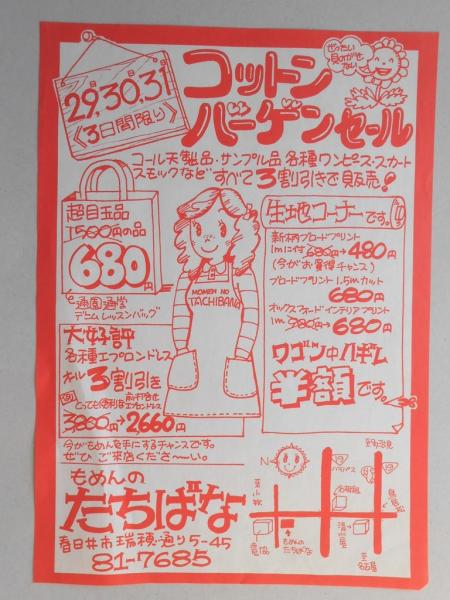 29,30,31
《3日間限り》
コットン
バーゲンセール
ぜったい
見のがせ
ない
コール天製品・サンプル品 各種ワンピース・スカート
スモックなどすべて3割引きで販売!
超目玉品
1500円の品
680円
通園通学
デニムレッスンバッグ
MOMEN NO
TACHIBANA
生地コーナーです。
新柄ブロードプリント
1mに付680円→480円
(今がお買得チャンス)
ブロードプリント1.5mカット
680円
オックスフォードインテリアプリント
1m 980円→680円
ワゴン中ハギレ
半額です。
大好評
各種エプロンドレス
オール3割引き
とっても便利な
3800円→2660円
今がもめんを手にするチャンスです。
ぜひご来店くださ〜い。
もめんの
たちばな
春日井市瑞穂通り5-45
81-7685
N
至小牧
バイパス
鳥居松
清水屋
電協
もめんの
たちばな
至名古屋